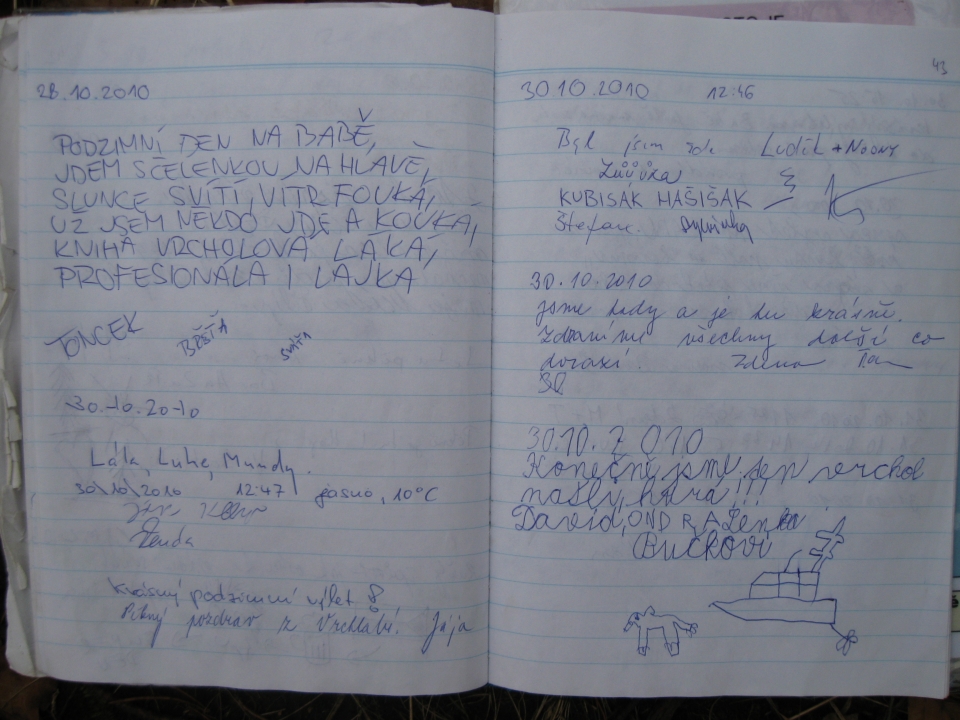 28.10.2010
PODZIMNÍ DEN NA BABĚ,
JDEM SČELENKOU NA HLAVĚ,
SLUNCE SVÍTÍ, VÍTR FOUKÁ,
UŽ JSEM NEKDO JDE A KOUKÁ,
KNIHA VRCHOLOVÁ LÁKÁ,
PROFESIONÁLA I LAJKA
TONCEK
30.10.2010
Lála, Luke, Mundy.
30\10\2010 12:47 jasno, 10°C
Zenda
Krásný podzimní výlet!
Pěkný pozdrav z Vrchlabí. Jája
43
30 10.2010 12:46
Byl jsem zde Luděk + Noony
KUBISÁK HAŠIŠÁK
Štefan.
30.10.2010
jsme tady a je tu krásně.
Zdravíme všechny další co
dorazí. Zdena
30.10.2010
Konečně jsme ten vrchol
našly, hurá!!!
David, ONDRA, Lenka
Bučkovi